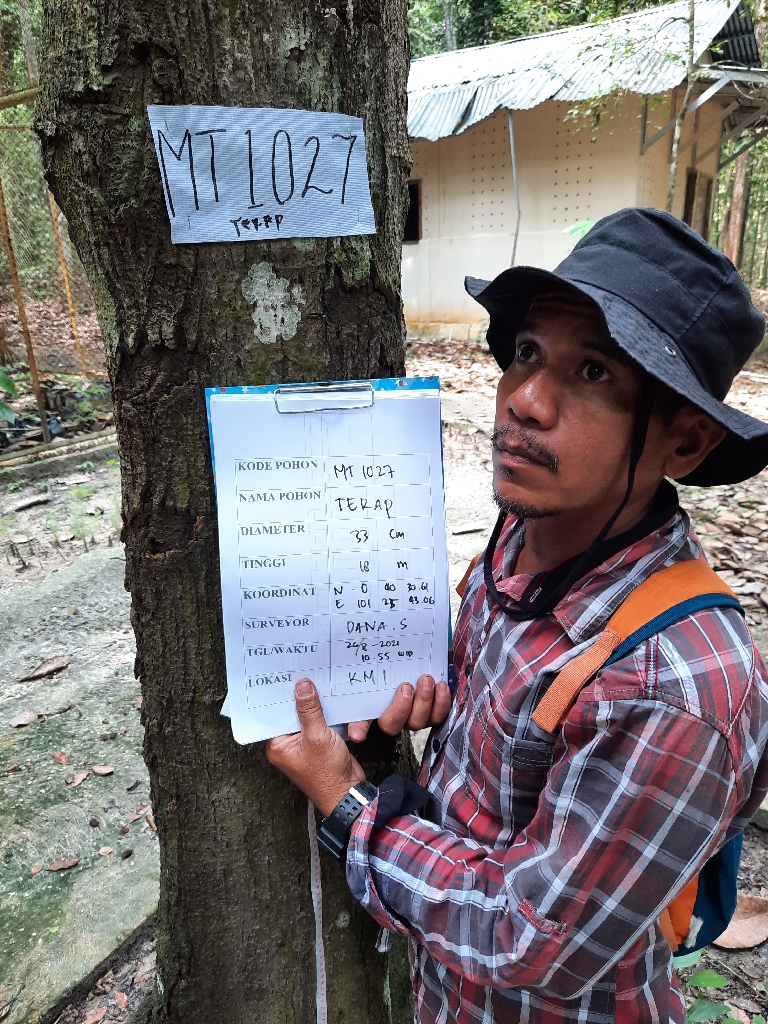 MT 1027
TERAP
KODE POHON MT 1027
NAMA POHON TERAP
DIAMETER 33 cm
TINGGI 18 m
KOORDINAT N 0 40 30.61
E 101 25 43.06
SURVEYOR DANA.S
TGL/WAKTU 24/8-2021
10.55 WIB
LOKASI KM 1